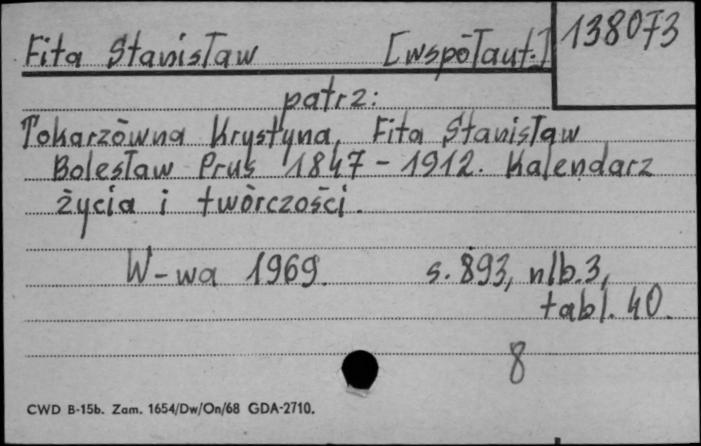 Fita Stanisław [współaut.] 138073
patrz:
Tokarzówna Krystyna, Fita Stanisław
Bolesław Prus 1847 - 1912. Kalendarz
życia i twórczości.
W-wa 1969. s. 893, nlb. 3,
tabl. 40.
8
CWD B-15b. Zam. 1654/Dw/On/68 GDA-2710.